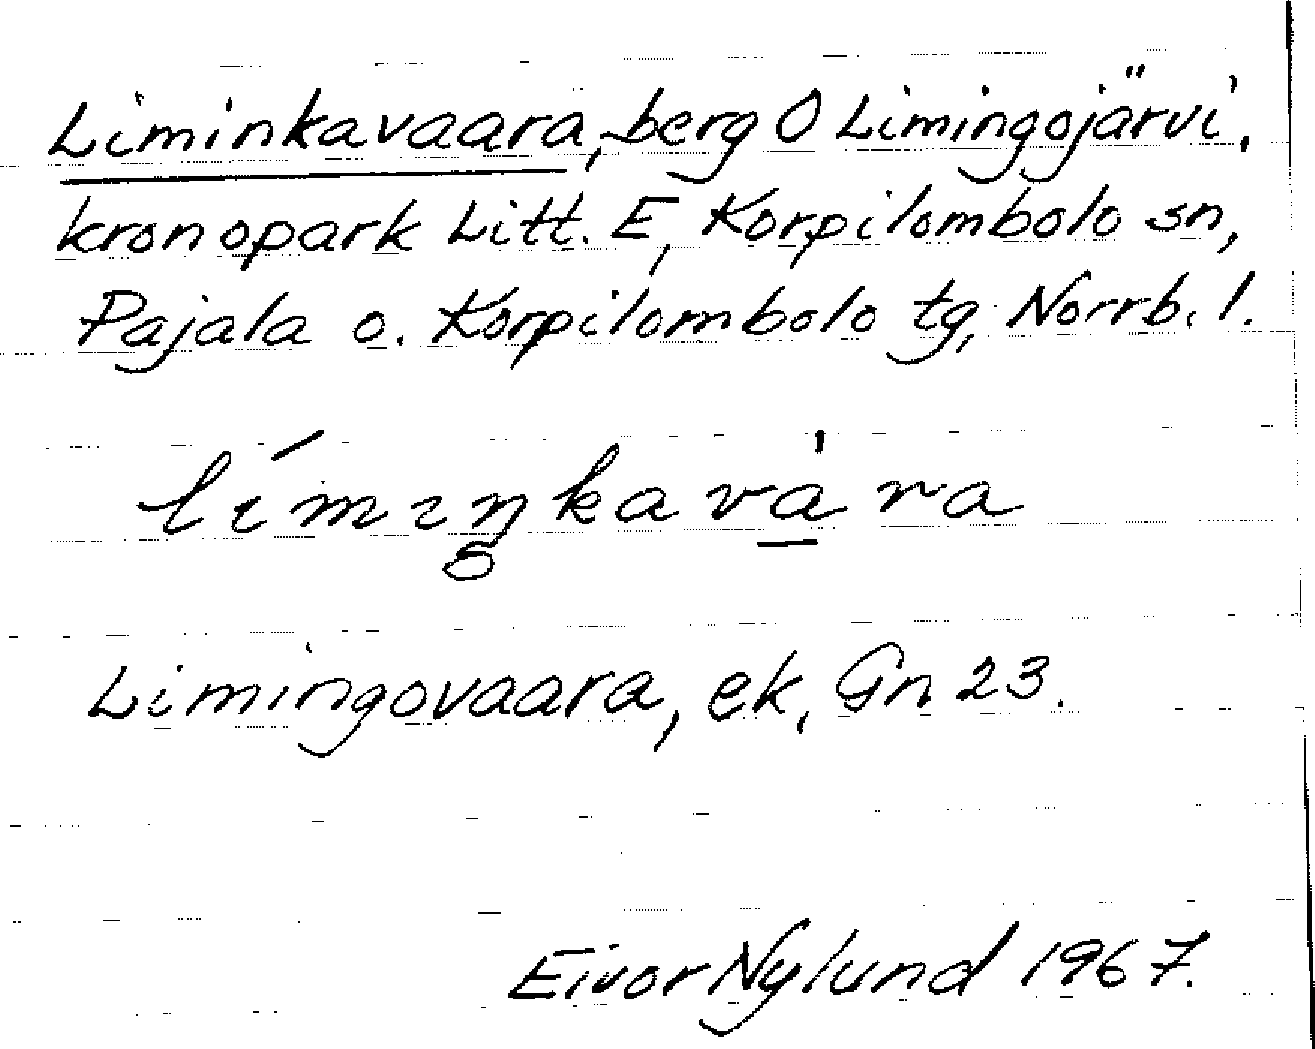 Liminkavaara, berg O Limingojärvi,
kronopark Litt. E, Korpilombolo sn,
Pajala o. Korpilombolo tg, Norrb. l.
límıŋ̥kava̠̍ra
Limingovaara, ek, Gn 23.
Eivor Nylund 1967.